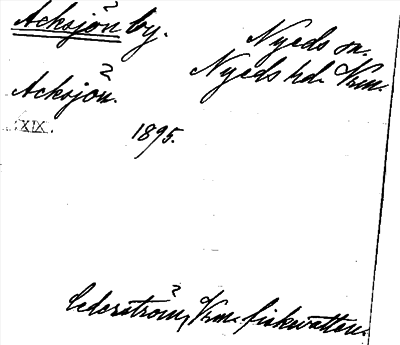 Acksjön by.
Nyeds sn.
Nyeds hd. Vrm.
Acksjön.
XIX.
1895.
Cederström, Vrm. fiskevatten.